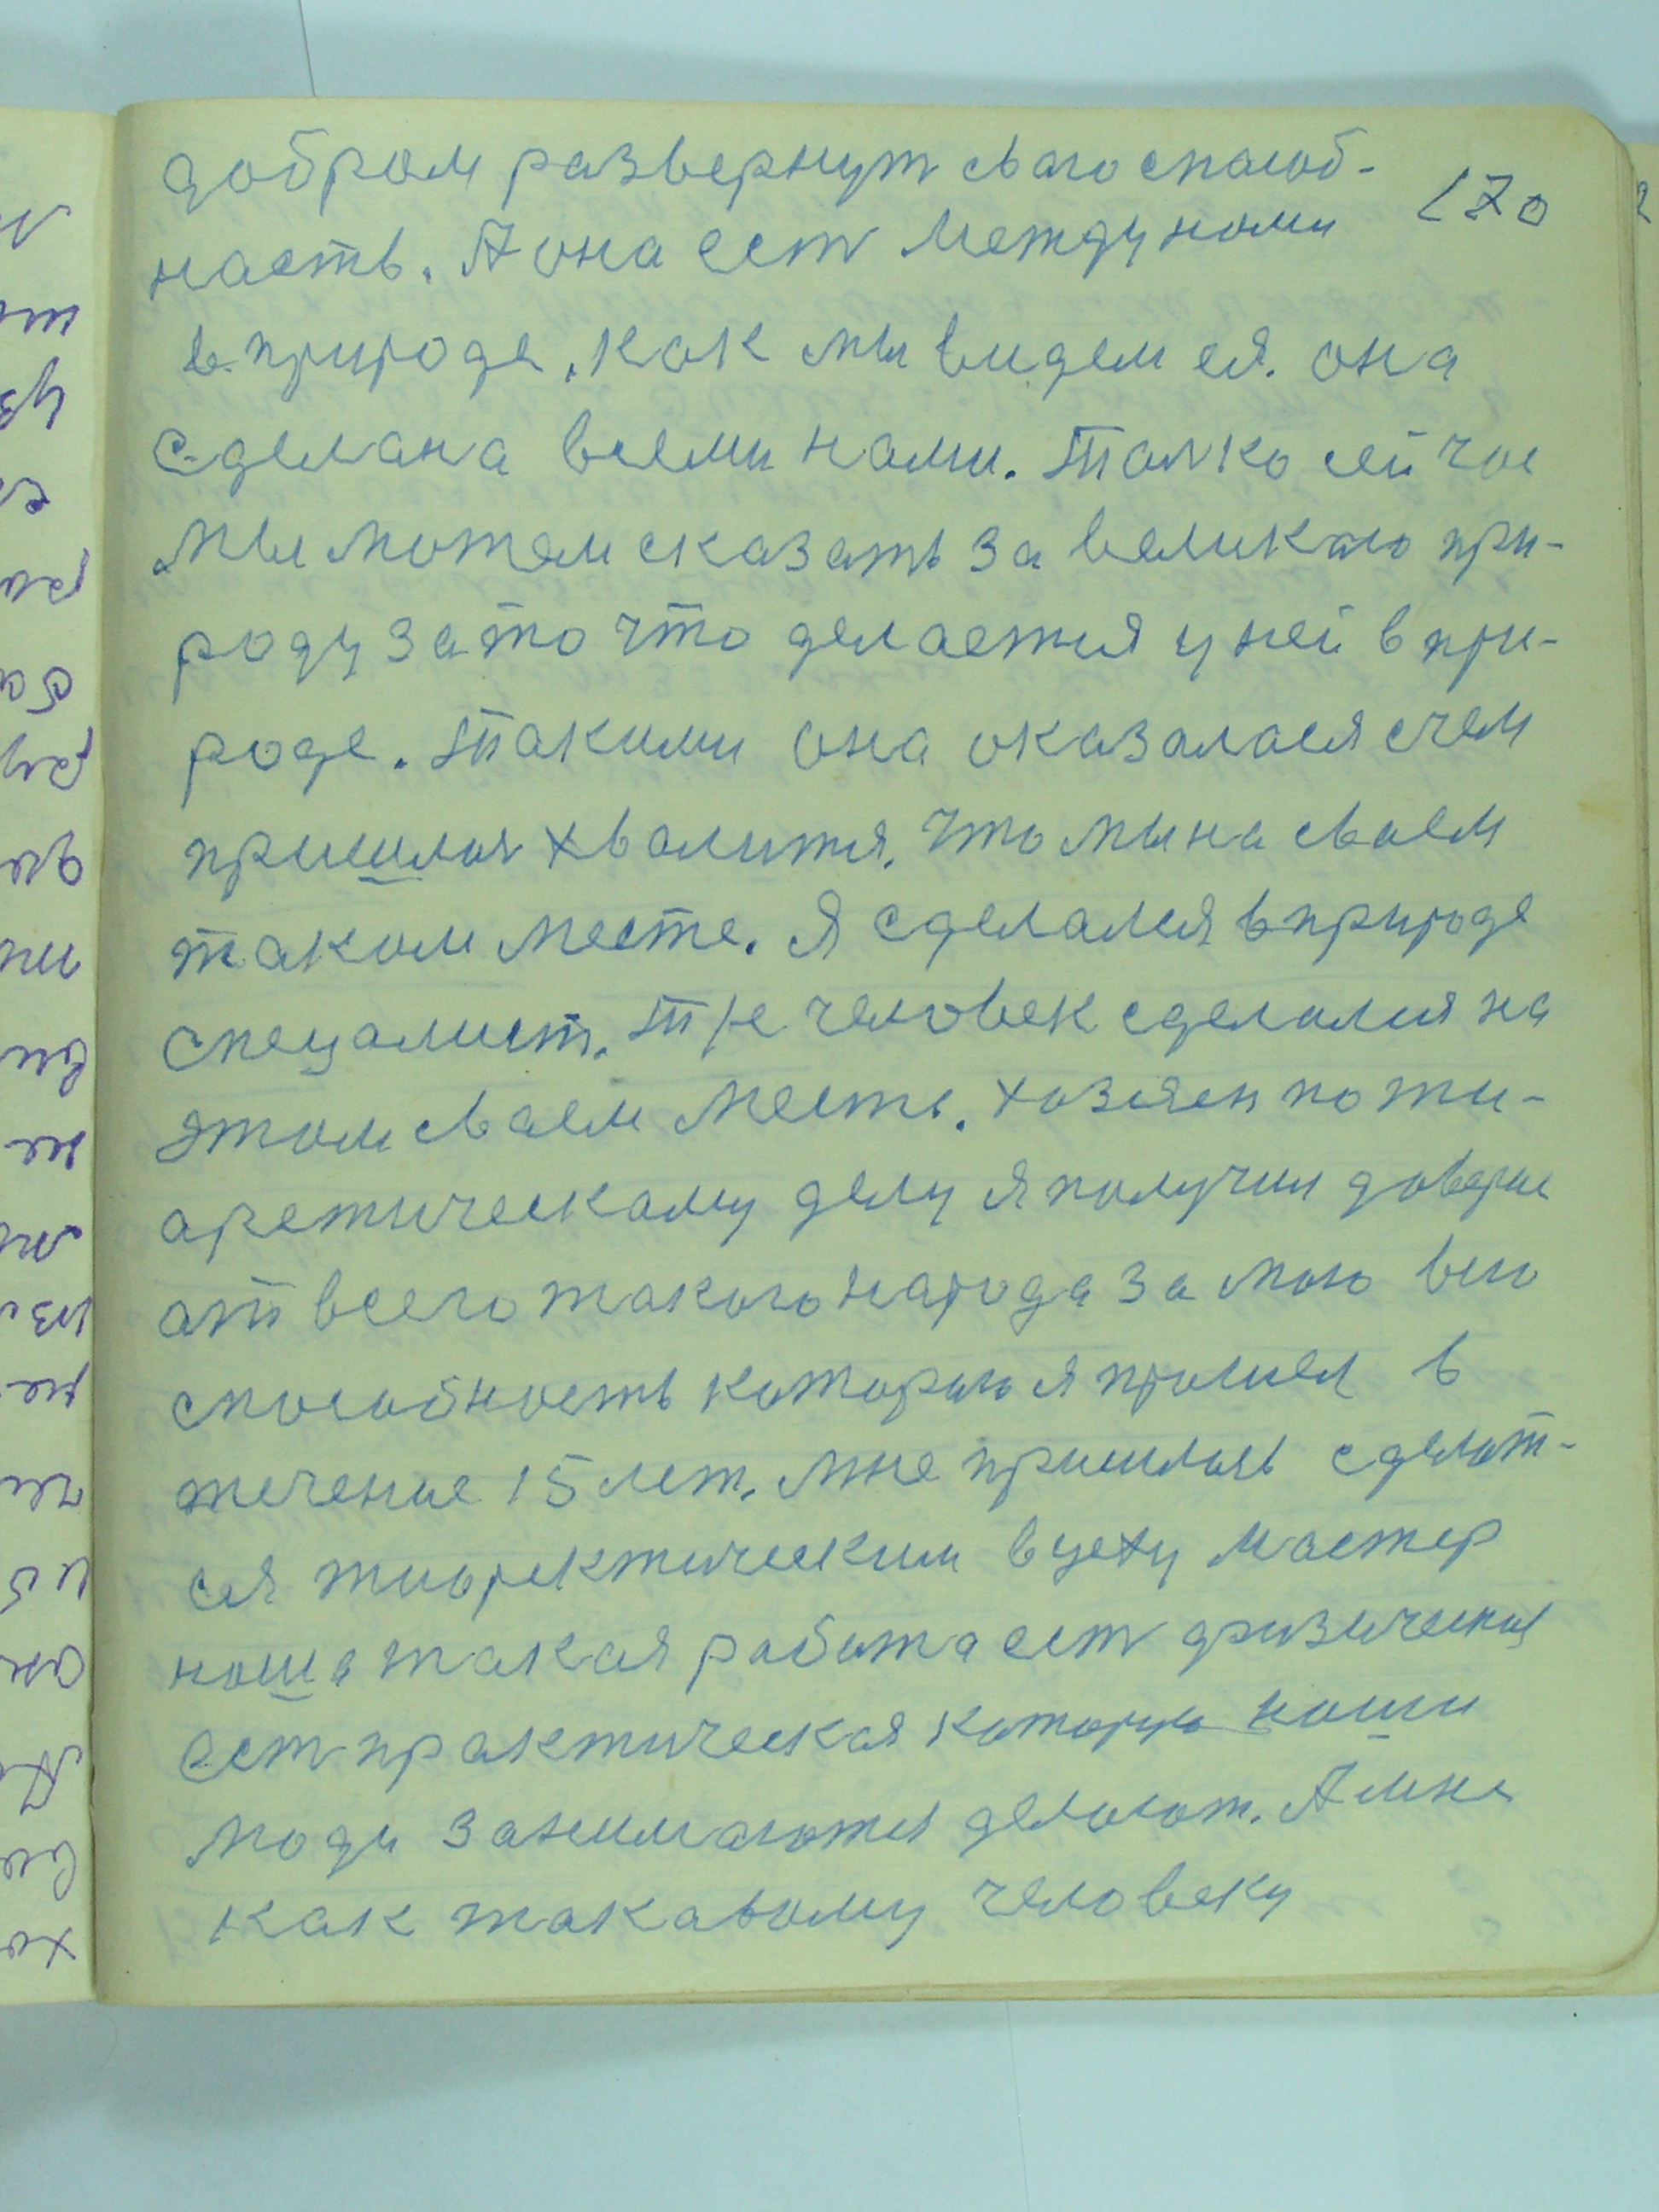 добром развернут сваю спасоб-
170
насть. А она ест между нами
в природе. как мы видем ея. она
сделана всеми нами. Толко сейчас
мы можем сказать за великаю при-
роду за то что делается у ней в при-
роде. Такими она оказалася счем
пришлая хвалится. что мы на сваем
таком месте. Я сделался в природе
специалист. Т/е человек сделался на
этом сваем месть. хозяен по ти-
аретическаму делу я получил доверие
ат всего такого народа за мою всю
способность которую я прошел в
течение 15 лет. мне пришлась сделат-
ся тиоректическим в цеху мастер
наша такая работа ест физическая
ест практическая которую наши
люди занимаются делают. А мне
как такавому человеку